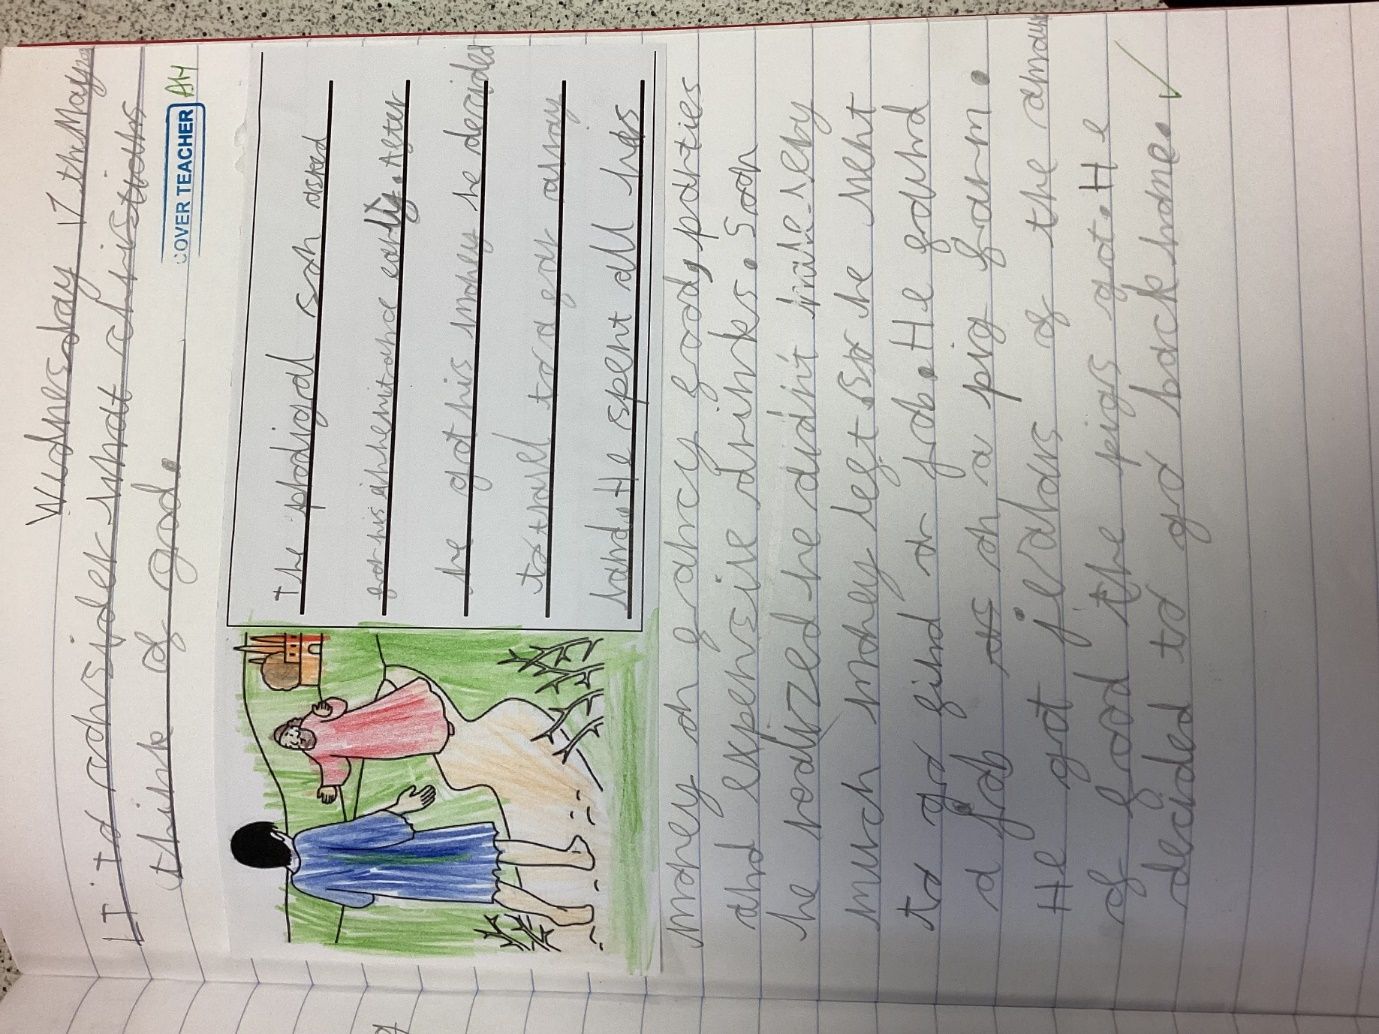 Wednesday 17th May
LI To consider what christians
think of god.
COVER TEACHER
AH
The prodigal son asked
for his inheritance early. After
he got his money he decided
to travel to a far away
land. He spent all his
money on fancy food, parties
and expensive drinks. Soon
he realized he didn't have very
much money left so he went
to go find a job. He found
a job on a pig farm.
He got jealous of the amount
of food the pigs got. He
decided to go back home.